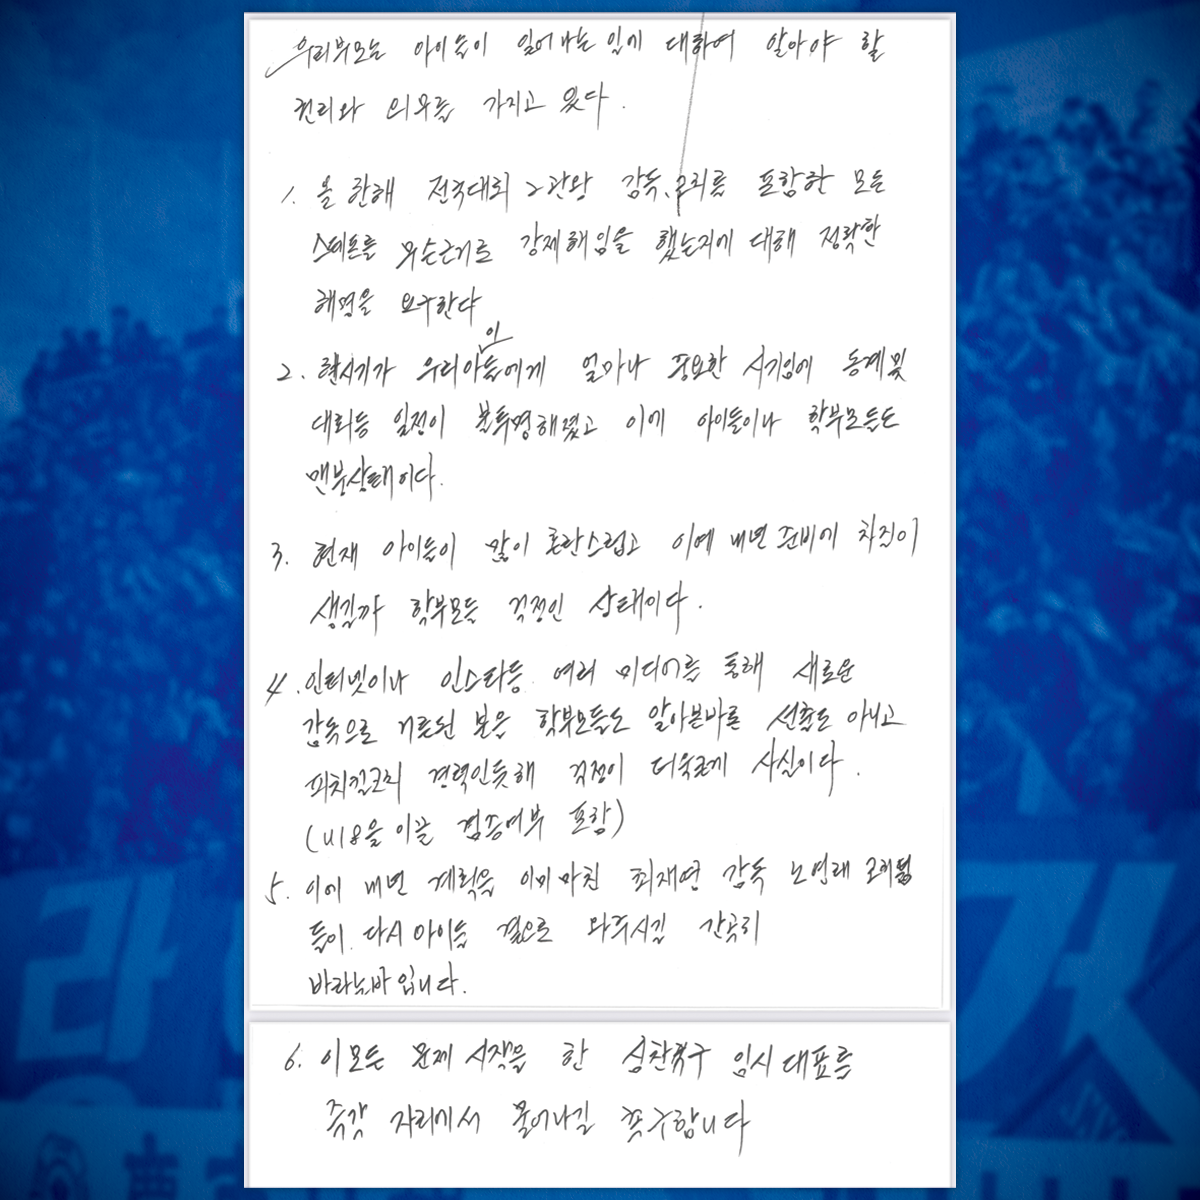 우리부모는 아이들이 일어나는 일에 대하여 알아야 할
권리와 의무를 가지고 있다.
1. 올 한해 전국대회 2관왕 감독, 코치를 포함한 모든
스태프를 무슨근거로 강제해임을 했는지에 대해 정확한
해명을 요구한다
이
2. 현시기가 우리아들에게 얼마나 중요한 시기임에 동계및
대회등 일정이 불투명해졌고 이에 아이들이나 학부모들도
맨붕상태이다.
3. 현재 아이들이 많이 혼란스럽고 이에 내년 준비에 차질이
생길까 학부모들 걱정인 상태이다.
4. 인터넷이나 인스타등 여러 미디어를 통해 새로운
감독으로 거론된 분은 학부모들도 알아본바론 선출도 아니고
피지컬코치 경력인듯해 걱정이 더욱크게 사실이다.
(U18을 이끌 검증여부 포함)
5. 이에 내년 계획을 이미 마친 최재영 감독 노연래 코치님
들이 다시 아이들 곁으로 와주시길 간곡히
바라는바 입니다.
6. 이 모든 문제 시작을 한 심찬구 임시 대표를
즉각 자리에서 물어나길 촉구합니다